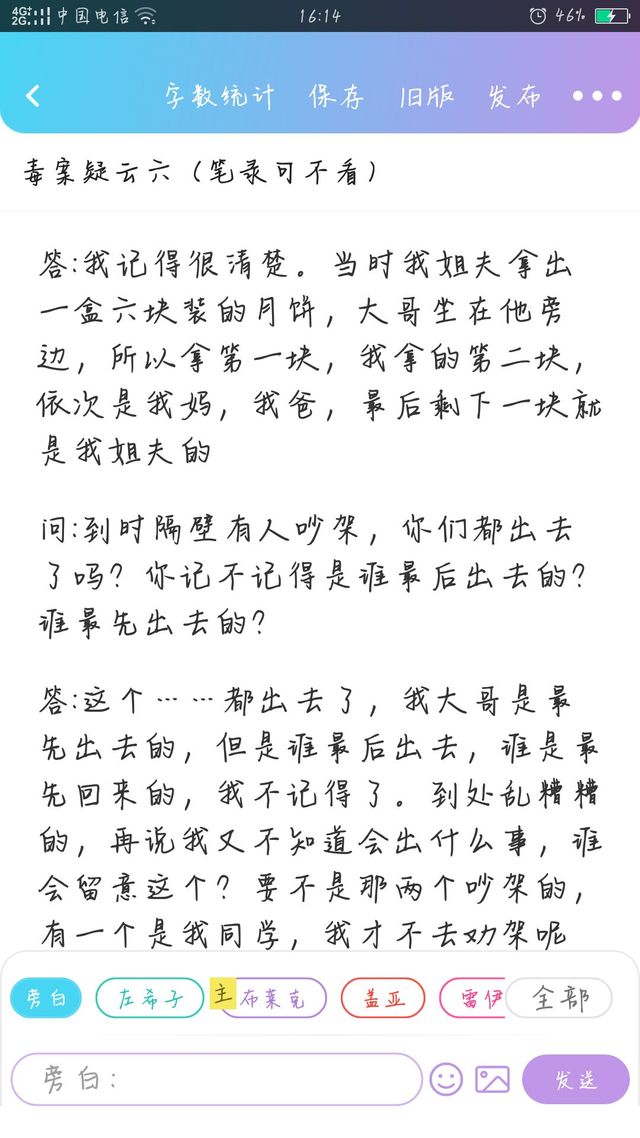 4G+ 2G 中国电信 16:14 46%
字数统计 保存 旧版 发布
毒案疑云六（笔录可不看）
答:我记得很清楚。当时我姐夫拿出
一盒六块装的月饼，大哥坐在他旁
边，所以拿第一块，我拿的第二块，
依次是我妈，我爸，最后剩下一块就
是我姐夫的
问:到时隔壁有人吵架，你们都出去
了吗？你记不记得是谁最后出去的？
谁最先出去的？
答:这个……都出去了，我大哥是最
先出去的，但是谁最后出去，谁是最
先回来的，我不记得了。到处乱糟糟
的，再说我又不知道会出什么事，谁
会留意这个？要不是那两个吵架的，
有一个是我同学，我才不去劝架呢
旁白 左希子 主 布莱克 盖亚 雷伊 全部
旁白： 发送